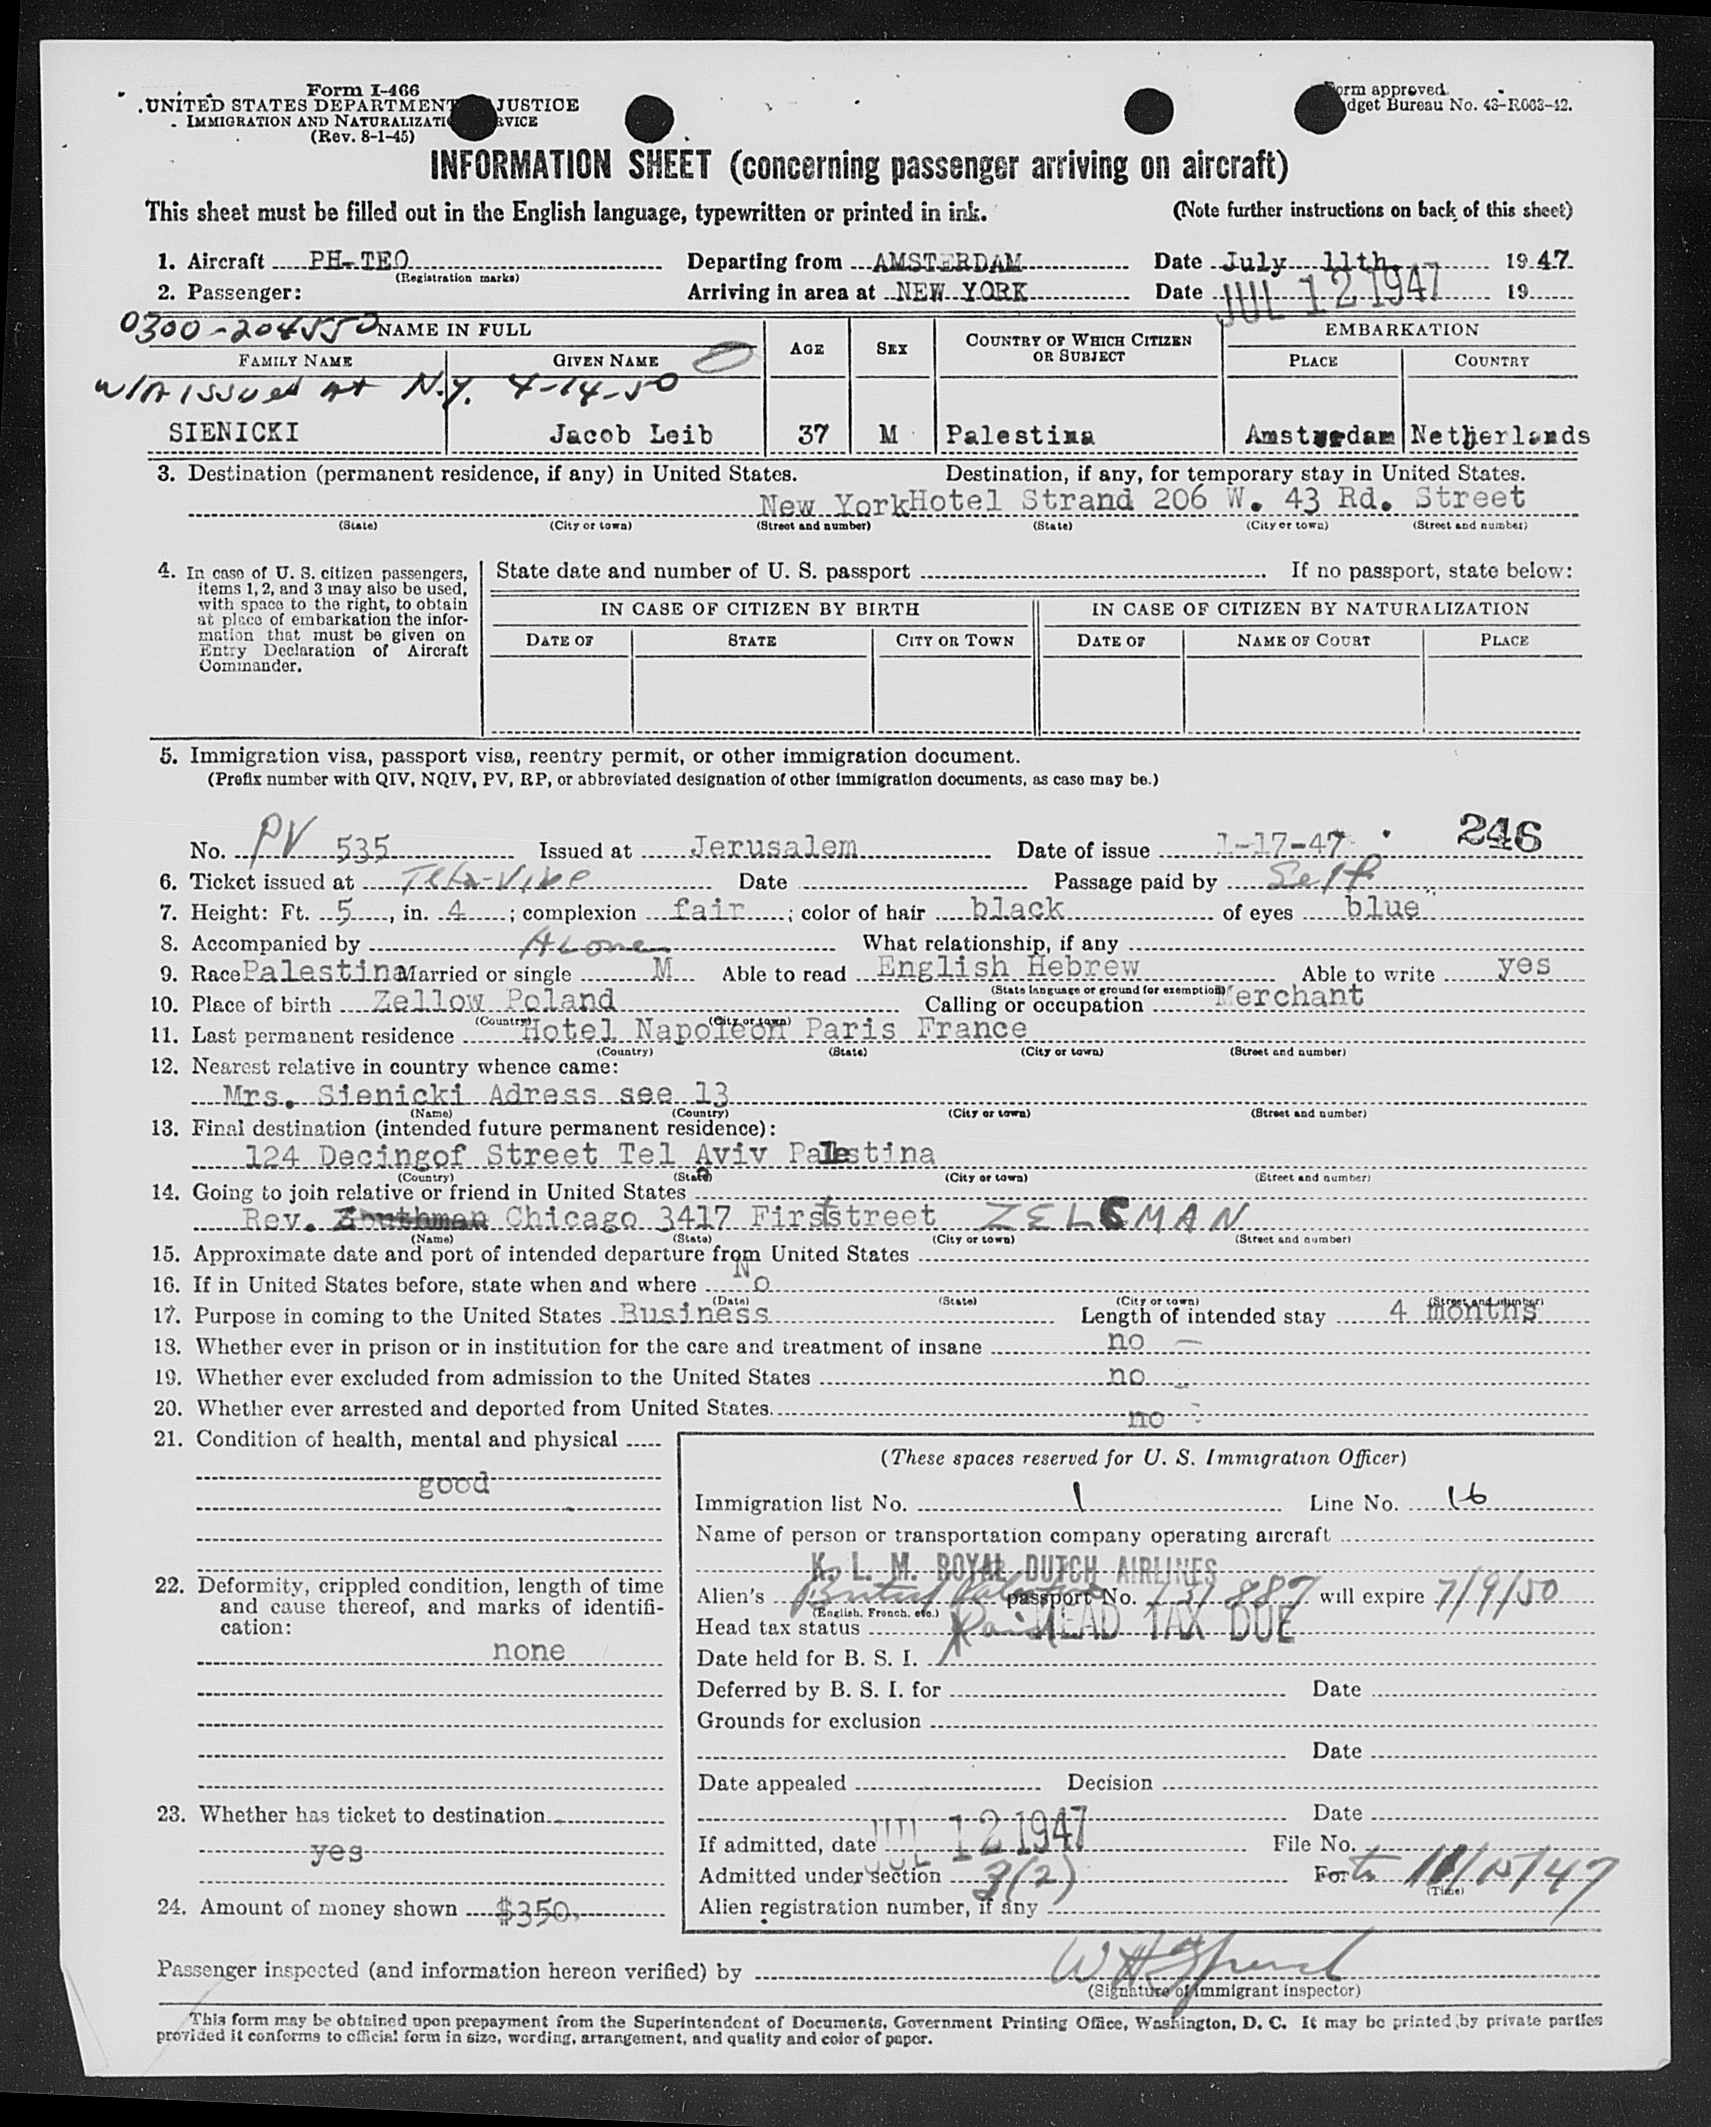 Form I-466
UNITED STATES DEPARTMENT JUSTICE
IMMIGRATION AND NATURALIZATION SERVICE
(Rev. 8-1-45)
Form approved.
Budget Bureau No. 43-R003-42.
INFORMATION SHEET (concerning passenger arriving on aircraft)
This sheet must be filled out in the English language, typewritten or printed in ink. (Note further instructions on back of this sheet)
1. Aircraft PH-TEO Departing from AMSTERDAM Date July 11th 1947
(Registration marks)
2. Passenger: Arriving in area at NEW YORK Date JUL 12 1947 19
0300-204550 NAME IN FULL AGE SEX COUNTRY OF WHICH CITIZEN OR SUBJECT EMBARKATION
FAMILY NAME GIVEN NAME PLACE COUNTRY
W/A issued at N.Y. 4-14-50
SIENICKI Jacob Leib 37 M Palestina Amsterdam Netherlands
3. Destination (permanent residence, if any) in United States. Destination, if any, for temporary stay in United States.
New York Hotel Strand 206 W. 43 Rd. Street
(State) (City or town) (Street and number) (State) (City or town) (Street and number)
4. In case of U. S. citizen passengers, items 1, 2, and 3 may also be used, with space to the right, to obtain at place of embarkation the information that must be given on Entry Declaration of Aircraft Commander.
State date and number of U. S. passport If no passport, state below:
IN CASE OF CITIZEN BY BIRTH IN CASE OF CITIZEN BY NATURALIZATION
DATE OF STATE CITY OR TOWN DATE OF NAME OF COURT PLACE
5. Immigration visa, passport visa, reentry permit, or other immigration document.
(Prefix number with QIV, NQIV, PV, RP, or abbreviated designation of other immigration documents, as case may be.)
No. PV 535 Issued at Jerusalem Date of issue 1-17-47 246
6. Ticket issued at Date Passage paid by Self
7. Height: Ft. 5, in. 4; complexion fair; color of hair black of eyes blue
8. Accompanied by Alone What relationship, if any
9. Race Palestina Married or single M Able to read English Hebrew Able to write yes
(State language or ground for exemption)
10. Place of birth Zellow Poland Calling or occupation Merchant
(Country) (City or town)
11. Last permanent residence Hotel Napoleon Paris France
(Country) (State) (City or town) (Street and number)
12. Nearest relative in country whence came:
Mrs. Sienicki Adress see 13
(Name) (Country) (City or town) (Street and number)
13. Final destination (intended future permanent residence):
124 Decingof Street Tel Aviv Palestina
(Country) (State) (City or town) (Street and number)
14. Going to join relative or friend in United States
Rev. Chicago 3417 First street ZELSMAN
(Name) (State) (City or town) (Street and number)
15. Approximate date and port of intended departure from United States
16. If in United States before, state when and where No
(Date) (State) (City or town) (Street and number)
17. Purpose in coming to the United States Business Length of intended stay 4 months
18. Whether ever in prison or in institution for the care and treatment of insane no
19. Whether ever excluded from admission to the United States no
20. Whether ever arrested and deported from United States no
21. Condition of health, mental and physical
good
22. Deformity, crippled condition, length of time and cause thereof, and marks of identification:
none
23. Whether has ticket to destination
yes
24. Amount of money shown $350,
(These spaces reserved for U. S. Immigration Officer)
Immigration list No. 1 Line No. 16
Name of person or transportation company operating aircraft
K. L. M. ROYAL DUTCH AIRLINES
Alien's British passport No. 131887 will expire 7/9/50
(English, French, etc.)
Head tax status Paid HEAD TAX DUE
Date held for B. S. I.
Deferred by B. S. I. for Date
Grounds for exclusion
Date
Date appealed Decision
Date
If admitted, date JUL 12 1947 File No.
Admitted under section 3(2) For to 11/15/47
(Time)
Alien registration number, if any
Passenger inspected (and information hereon verified) by
(Signature of immigrant inspector)
This form may be obtained upon prepayment from the Superintendent of Documents, Government Printing Office, Washington, D. C. It may be printed by private parties
provided it conforms to official form in size, wording, arrangement, and quality and color of paper.